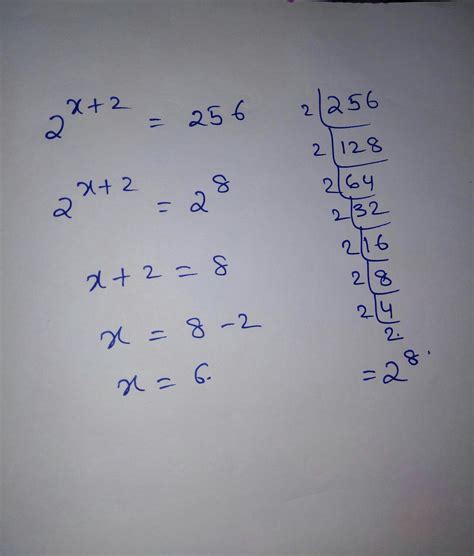 2^{x+2} = 256
2^{x+2} = 2^8
x + 2 = 8
x = 8 - 2
x = 6.
2 | 256
2 | 128
2 | 64
2 | 32
2 | 16
2 | 8
2 | 4
2.
= 2^8.